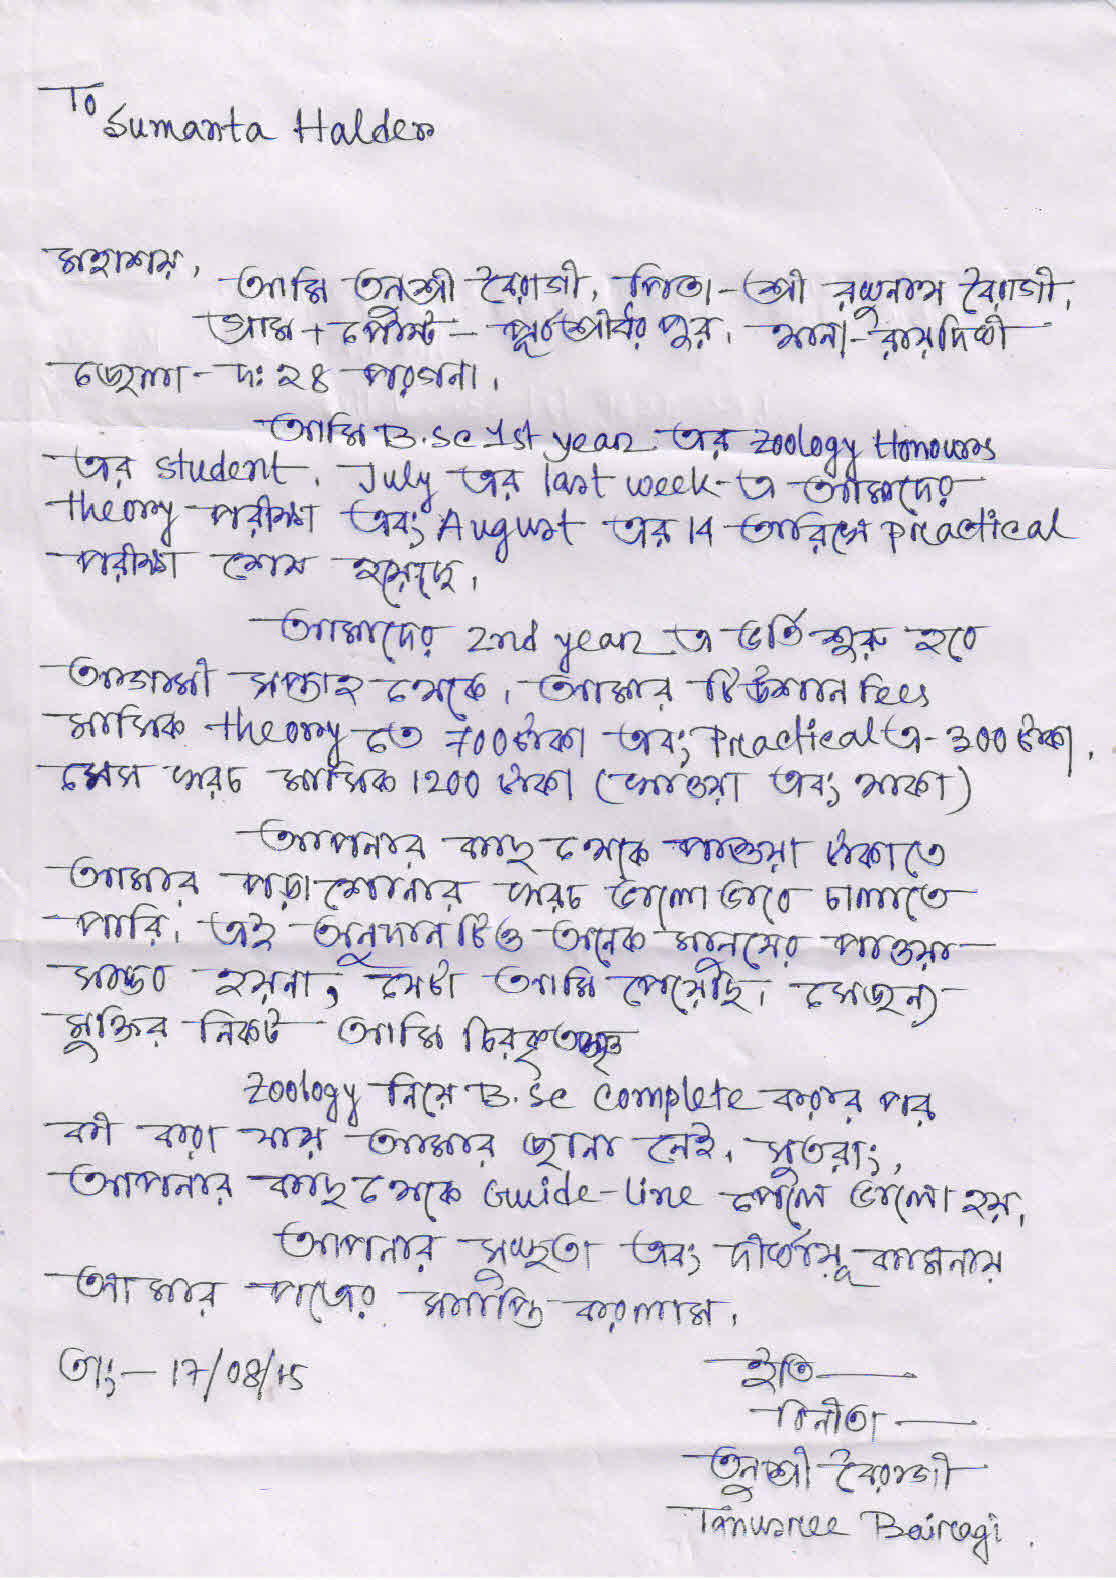 To
Sumanta Halder
মহাশয়,
আমি তনুশ্রী বৈরাগী, পিতা-শ্রী রঘুনাথ বৈরাগী,
গ্রাম + পোস্ট - পূর্বশ্রীধরপুর, থানা-রায়দিঘী
জেলা - দঃ ২৪ পরগনা।
আমি B.sc 1st year এর Zoology Honours
এর student. July এর last week-এ আমাদের
theory পরীক্ষা এবং August এর 14 তারিখে practical
পরীক্ষা শেষ হয়েছে।
আমাদের 2nd year এ ভর্তি শুরু হবে
আগামী সপ্তাহ থেকে। আমার টিউশান fees
মাসিক theory তে 700 টাকা এবং Practical এ - 300 টাকা।
মেস খরচ মাসিক 1200 টাকা (খাওয়া এবং থাকা)
আপনার কাছ থেকে পাওয়া টাকাতে
আমার পড়াশোনার খরচ ভালোভাবে চালাতে
পারি। এই অনুদানটিও অনেক মানুষের পাওয়া
সম্ভব হয়না, যেটা আমি পেয়েছি। সেজন্য
মুক্তির নিকট আমি চিরকৃতজ্ঞ
Zoology নিয়ে B.sc complete করার পর
কী করা যায় আমার জানা নেই। সুতরাং,
আপনার কাছ থেকে Guide-line পেলে ভালো হয়।
আপনার সুস্থতা এবং দীর্ঘায়ু কামনায়
আমার পত্রের সমাপ্তি করলাম।
তাং - 17/08/15
ইতি—
বিনীতা—
তনুশ্রী বৈরাগী
Tanusree Bairagi.